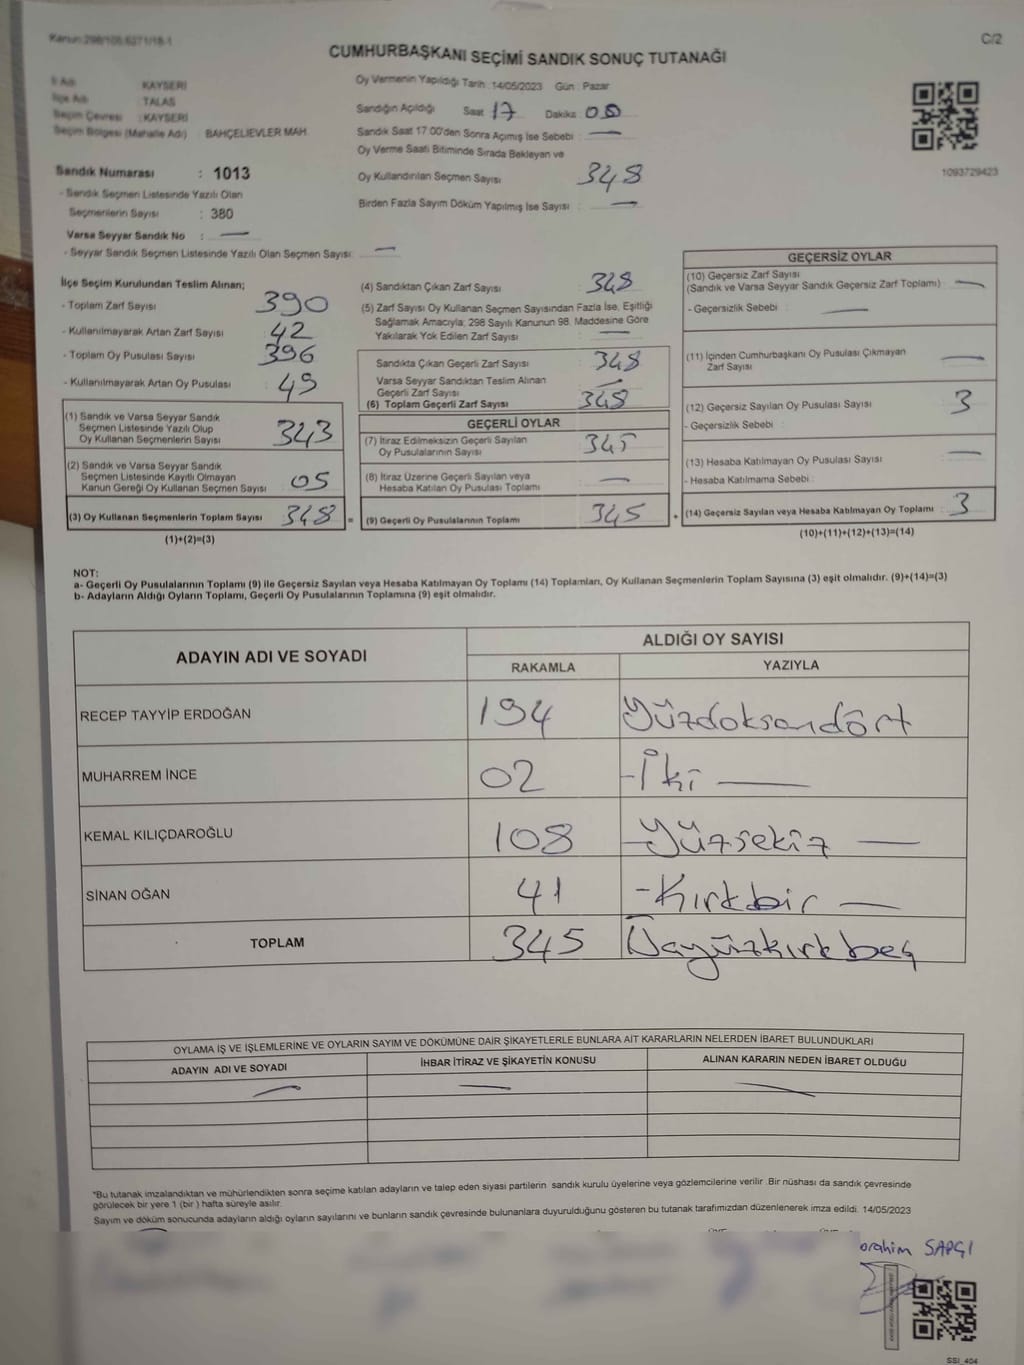 Kanun:298/105,6271/18-1
C/2
CUMHURBAŞKANI SEÇİMİ SANDIK SONUÇ TUTANAĞI
İl Adı : KAYSERİ
İlçe Adı : TALAS
Seçim Çevresi : KAYSERİ
Seçim Bölgesi (Mahalle Adı) : BAHÇELİEVLER MAH.
Sandık Numarası : 1013
- Sandık Seçmen Listesinde Yazılı Olan
Seçmenlerin Sayısı : 380
Varsa Seyyar Sandık No : —
- Seyyar Sandık Seçmen Listesinde Yazılı Olan Seçmen Sayısı: —
Oy Vermenin Yapıldığı Tarih :14/05/2023 Gün : Pazar
Sandığın Açıldığı Saat : 17 Dakika : 00
Sandık Saat 17.00'den Sonra Açımış İse Sebebi : —
Oy Verme Saati Bitiminde Sırada Bekleyan ve
Oy Kullandırılan Seçmen Sayısı : 348
Birden Fazla Sayım Döküm Yapılmış İse Sayısı : —
1093729423
İlçe Seçim Kurulundan Teslim Alınan;
- Toplam Zarf Sayısı : 390
- Kullanılmayarak Artan Zarf Sayısı : 42
- Toplam Oy Pusulası Sayısı : 396
- Kullanılmayarak Artan Oy Pusulası : 49
(1) Sandık ve Varsa Seyyar Sandık
Seçmen Listesinde Yazılı Olup
Oy Kullanan Seçmenlerin Sayısı : 343
(2) Sandık ve Varsa Seyyar Sandık
Seçmen Listesinde Kayıtlı Olmayan
Kanun Gereği Oy Kullanan Seçmen Sayısı : 05
(3) Oy Kullanan Seçmenlerin Toplam Sayısı : 348 =
(1)+(2)=(3)
(4) Sandıktan Çıkan Zarf Sayısı : 348
(5) Zarf Sayısı Oy Kullanan Seçmen Sayısından Fazla İse, Eşitliği
Sağlamak Amacıyla; 298 Sayılı Kanunun 98. Maddesine Göre
Yakılarak Yok Edilen Zarf Sayısı : —
Sandıkta Çıkan Geçerli Zarf Sayısı : 348
Varsa Seyyar Sandıktan Teslim Alınan
Geçerli Zarf Sayısı : —
(6) Toplam Geçerli Zarf Sayısı : 348
GEÇERLİ OYLAR
(7) İtiraz Edilmeksizin Geçerli Sayılan
Oy Pusulalarının Sayısı : 345
(8) İtiraz Üzerine Geçerli Sayılan veya
Hesaba Katılan Oy Pusulası Toplamı : —
(9) Geçerli Oy Pusulalarının Toplamı : 345 +
GEÇERSİZ OYLAR
(10) Geçersiz Zarf Sayısı
(Sandık ve Varsa Seyyar Sandık Geçersiz Zarf Toplamı) : —
- Geçersizlik Sebebi : —
(11) İçinden Cumhurbaşkanı Oy Pusulası Çıkmayan
Zarf Sayısı : —
(12) Geçersiz Sayılan Oy Pusulası Sayısı : 3
- Geçersizlik Sebebi :
(13) Hesaba Katılmayan Oy Pusulası Sayısı : —
- Hesaba Katılmama Sebebi :
(14) Geçersiz Sayılan veya Hesaba Katılmayan Oy Toplamı : 3
(10)+(11)+(12)+(13)=(14)
NOT:
a- Geçerli Oy Pusulalarının Toplamı (9) ile Geçersiz Sayılan veya Hesaba Katılmayan Oy Toplamı (14) Toplamları, Oy Kullanan Seçmenlerin Toplam Sayısına (3) eşit olmalıdır. (9)+(14)=(3)
b- Adayların Aldığı Oyların Toplamı, Geçerli Oy Pusulalarının Toplamına (9) eşit olmalıdır.
ADAYIN ADI VE SOYADI
ALDIĞI OY SAYISI
RAKAMLA YAZIYLA
RECEP TAYYİP ERDOĞAN 194 Yüzdoksandört
MUHARREM İNCE 02 -İki —
KEMAL KILIÇDAROĞLU 108 -Yüzsekiz —
SİNAN OĞAN 41 -Kırkbir —
TOPLAM 345 Üçyüzkırkbeş
OYLAMA İŞ VE İŞLEMLERİNE VE OYLARIN SAYIM VE DÖKÜMÜNE DAİR ŞİKAYETLERLE BUNLARA AİT KARARLARIN NELERDEN İBARET BULUNDUKLARI
ADAYIN ADI VE SOYADI İHBAR İTİRAZ VE ŞİKAYETİN KONUSU ALINAN KARARIN NEDEN İBARET OLDUĞU
— — —
*Bu tutanak imzalandıktan ve mühürlendikten sonra seçime katılan adayların ve talep eden siyasi partilerin sandık kurulu üyelerine veya gözlemcilerine verilir .Bir nüshası da sandık çevresinde
görülecek bir yere 1 (bir ) hafta süreyle asılır.
Sayım ve döküm sonucunda adayların aldığı oyların sayılarını ve bunların sandık çevresinde bulunanlara duyurulduğunu gösteren bu tutanak tarafımızdan düzenlenerek imza edildi. 14/05/2023
brahim SARGI
SSI_404